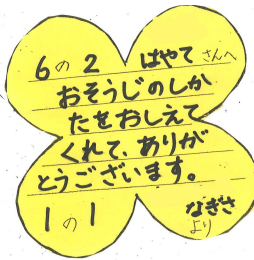 6の2 はやてさんへ
おそうじのしか
たをおしえて
くれて、ありが
とうございます。
1の1 なぎさ
より